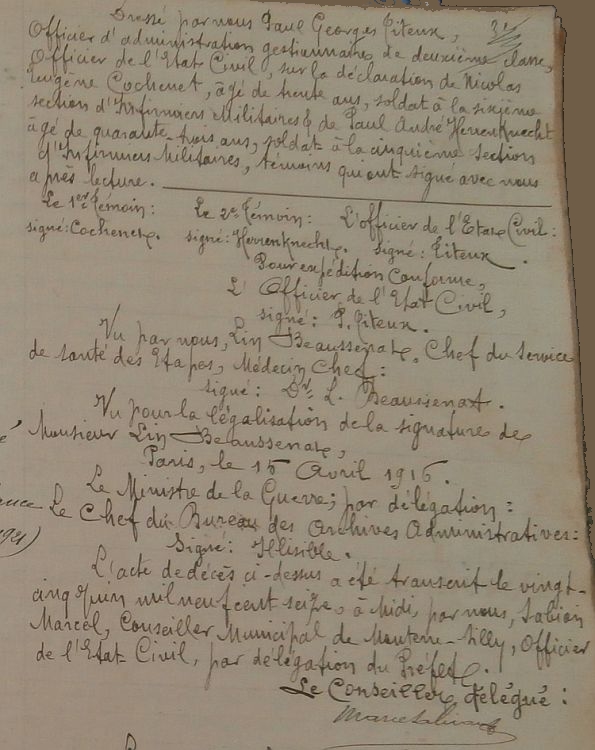 Dressé par nous Paul Georges Titeux,
Officier d'administration gestionnaire de deuxième classe,
Officier de l'Etat Civil, sur la déclaration de Nicolas
Eugène Cochenet, âgé de trente ans, soldat à la sixième
section d'Infirmiers Militaires & de Paul André Herrenknecht
âgé de quarante-trois ans, soldat à la cinquième section
d'Infirmiers Militaires, témoins qui ont signé avec nous
après lecture.
Le 1er Témoin: Le 2e Témoin: L'officier de l'Etat Civil:
signé: Cochenet. signé: Herrenknecht. signé: Titeux.
Pour expédition Conforme,
L'Officier de l'Etat Civil,
signé: P. Titeux.
Vu par nous, Lin Beaussenat, Chef du Service
de santé des Etapes, Médecin Chef:
signé: Dr. L. Beaussenat.
Vu pour la légalisation de la signature de
Monsieur Lin Beaussenat,
Paris, le 15 Avril 1916.
Le Ministre de la Guerre; par délégation:
Le Chef du Bureau des Archives Administratives:
Signé: Illisible.
L'acte de décès ci-dessus a été transcrit le vingt-
cinq Juin mil neuf cent seize, à Midi, par nous,
Marcel, Conseiller Municipal de , Officier
de l'Etat Civil, par délégation du Préfet.
Le Conseiller délégué: